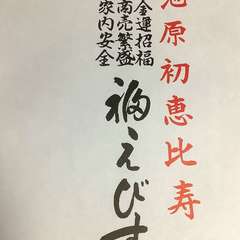 原初恵比寿
金運招福
商売繁盛
家内安全
福えびす